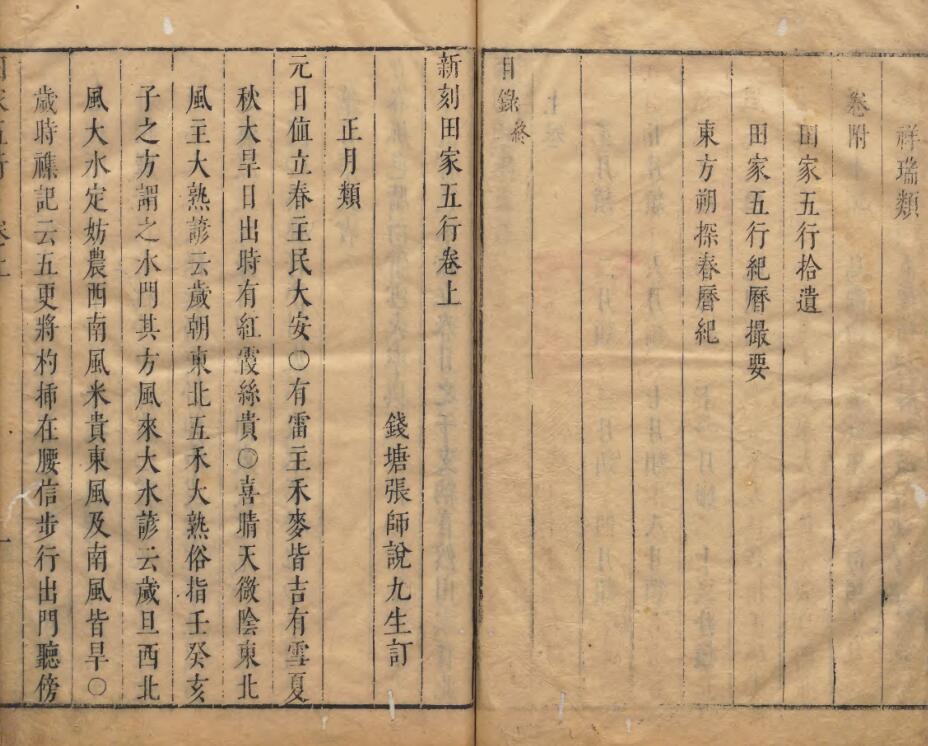 祥瑞類
卷附
田家五行拾遺
田家五行紀曆撮要
東方朔探春曆紀
目錄終
新刻田家五行卷上
錢塘張師說九生訂
正月類
元日值立春主民大安〇有雷主禾麥皆吉有雪夏
秋大旱日出時有紅霞絲貴〇喜晴天微陰東北
風主大熟諺云歲朝東北五禾大熟俗指壬癸亥
子之方謂之水門其方風來大水諺云歲旦西北
風大水定妨農西南風米貴東風及南風皆旱〇
歲時襍記云五更將杓揷在腰信步行出門聽傍